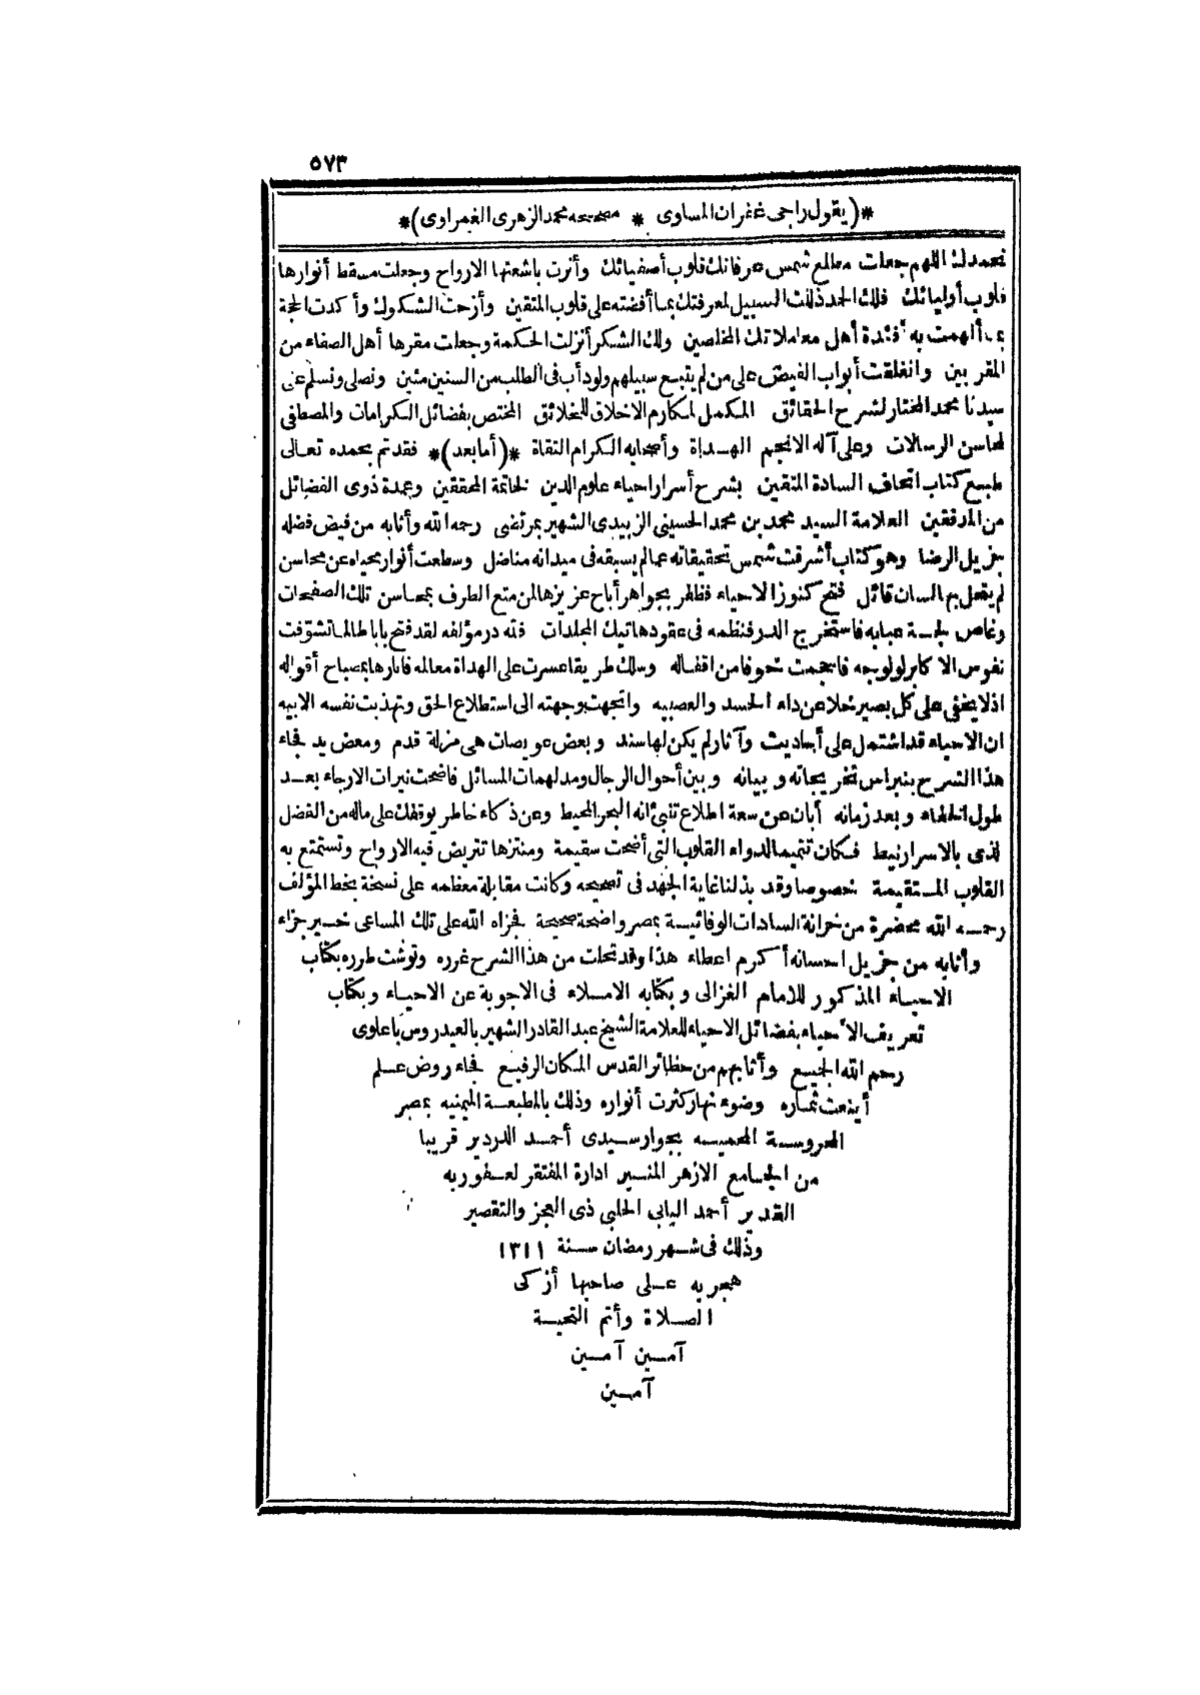 ٥٧٣
*(يقول راجى غفران المساوى * مصححه محمد الزهرى الغمراوى)*
نحمدك اللهم جعلت مطلع شمس عرفانك قلوب أصفيائك وأنرت باشعتها الارواح وجعلت مسقط أنوارها
قلوب أوليائك فلك الحمد ذللت السبيل لمعرفتك بما أفضته على قلوب المتقين وأزحت الشكوك وأكدت الحجة
بما ألهمت به أفئدة أهل معاملاتك المخلصين ولك الشكر أنزلت الحكمة وجعلت مقرها أهل الصفاء من
المقربين وانغلقت أبواب الفيض على من لم يتبع سبيلهم ولو دأب فى الطلب من السنين مئين ونصلى ونسلم على
سيدنا محمد المختار لشرح الحقائق المكمل لمكارم الاخلاق للخلائق المختص بفضائل الكرامات والمصطفى
لمحاسن الرسالات وعلى آله الانجم الهداة وأصحابه الكرام الثقاة *(أما بعد)* فقد تم بحمده تعالى
طبع كتاب اتحاف السادة المتقين بشرح أسرار احياء علوم الدين لخاتمة المحققين وعمدة ذوى الفضائل
من المدققين العلامة السيد محمد بن محمد الحسينى الزبيدى الشهير بمرتضى رحمه الله وأثابه من فيض فضله
جزيل الرضا وهو كتاب أشرقت شمس تحقيقاته عما لم يسبقه فى ميدانه مناضل وسطعت أنوار محياه عن محاسن
لم يتحمل بها لسان قائل فتح كنوز الاحياء فظفر بجواهر أباح عزيزها لمن متع الطرف بمحاسن تلك الصفحات
وغاص لجة عبابه فاستخرج الدر فنظمه فى عقود هاتيك المجلدات فلله در مؤلفه لقد فتح بابا طالما تشوّفت
نفوس الاكابر لولوجه فاحجمت خوفا من اقفاله وسلك طريقا عسرت على الهداة معالمه فانارها بمصباح أقواله
اذ لا يخفى على كل بصير خلا عن داء الحسد والعصبيه واتجهت وجهته الى استطلاع الحق وتهذبت نفسه الابيه
ان الاحياء قد اشتمل على أحاديث وآثار لم يكن لها سند وبعض عويصات هى مزلة قدم ومعض يد فجاء
هذا الشرح بنبراس تخريجاته وبيانه وبين أحوال الرجال ومدلهمات المسائل فاضحت نيرات الارجاء بعد
طول الخفاء وبعد زمانه أبان عن سعة اطلاع تنبئ انه البحر المحيط وعن ذكاء خاطر يوقفك على ماله من الفضل
لذى بالاسرار نيط فكان تتميما لدواء القلوب التى أضحت سقيمة ومنتزها تتريض فيه الارواح وتستمتع به
القلوب المستقيمة خصوصا وقد بذلنا غاية الجهد فى تصحيحه وكانت مقابلة معظمه على نسخة بخط المؤلف
رحمه الله محضرة من خزانة السادات الوفائية بمصر واضحة صحيحة فجزاه الله على تلك المساعى خير جزاء
وأثابه من جزيل احسانه أكرم اعطاء هذا وقد تحلت من هذا الشرح غرره وتوشت طرره بكتاب
الاحياء المذكور للامام الغزالى وبكتابه الاملاء فى الاجوبة عن الاحياء وبكتاب
تعريف الأحياء بفضائل الاحياء للعلامة الشيخ عبد القادر الشهير بالعيدروس باعلوى
رحم الله الجميع وأثابهم من حظائر القدس المكان الرفيع فجاء روض علم
أينعت ثماره وضوء نهار كثرت أنواره وذلك بالمطبعة الميمنيه بمصر
المحروسة المحميه بجوار سيدى أحمد الدردير قريبا
من الجامع الازهر المنير ادارة المفتقر لعفو ربه
القدير أحمد البابى الحلبى ذى العجز والتقصير
وذلك فى شهر رمضان سنة ١٣١١
هجريه على صاحبها أزكى
الصلاة وأتم التحية
آمين آمين
آمين